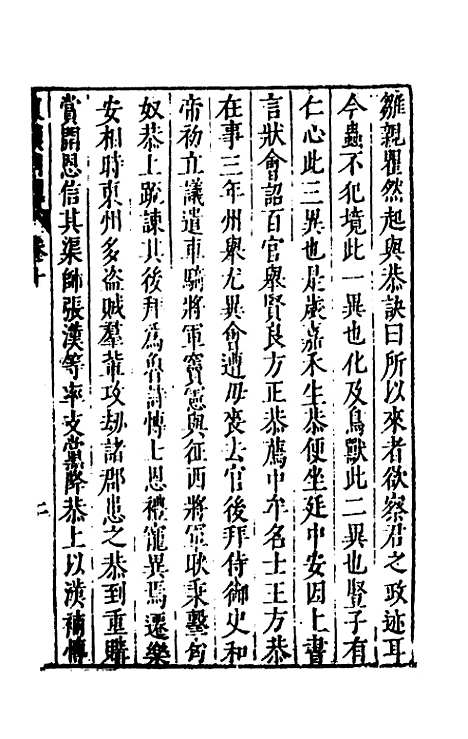 雛親瞿然起與恭訣曰所以來者欲察君之政迹耳
今蟲不犯境此一異也化及鳥獸此二異也豎子有
仁心此三異也是歲嘉禾生恭便坐廷中安因上書
言狀會詔百官舉賢良方正恭薦中牟名士王方恭
在事三年州舉尤異會遭母喪去官後拜侍御史和
帝初立議遣車騎將軍竇憲與征西將軍耿秉擊匈
奴恭上疏諫其後拜爲魯詩博士恩禮寵異焉遷樂
安相時東州多盜賊羣輩攻劫諸郡患之恭到重購
賞開恩信其渠帥張漢等率支黨降恭上以漢補博
卷十
二